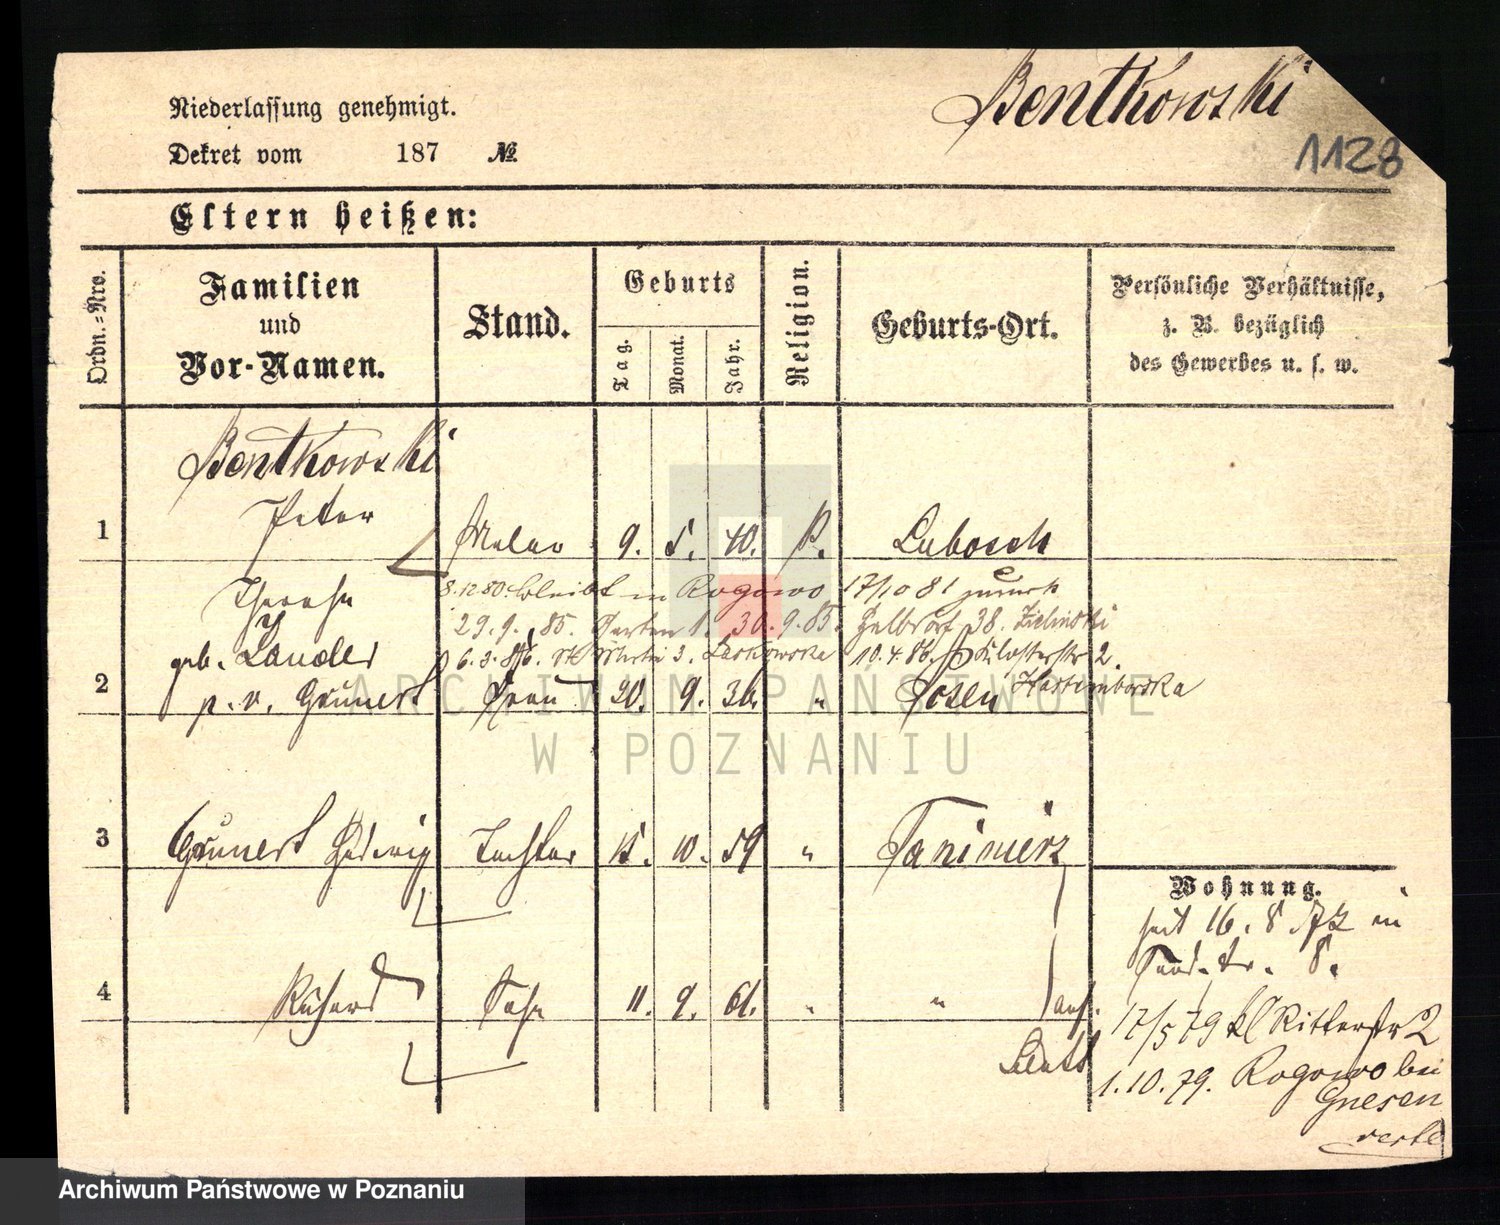 Bentkowski
1128
Niederlassung genehmigt.
Dekret vom 187 №
Eltern heißen:
Ordn.-Nro.
Familien
und
Vor-Namen.
Stand.
Geburts
Tag.
Monat.
Jahr.
Religion.
Geburts-Ort.
Persönliche Verhältnisse,
z. B. bezüglich
des Gewerbes u. s. w.
Bentkowski
1 Peter Maler 9. 5. 40. Lubosch
8.12.80. bleibt in Rogowo 17/10 81 zurück
Theresa
29.9.85. Garten 1. 30.9.85. Halbdorf 38. Zielinski
geb. Lander 6.3.86. 3. Laskowska 10.4.86. Klosterstr 2.
2 p. v. Grunert Frau 20. 9. 36. " Posen
3 Grunert Hedwig Tochter 15. 10. 59 "
4 Richard Sohn 11. 9. 61. " "
Wohnung.
seit 16. 8 72 in
8.
17/5 79 kl Ritterstr 2
1.10.79. Rogowo bei
Gnesen
verte
ARCHIWUM PAŃSTWOWE
W POZNANIU
Archiwum Państwowe w Poznaniu